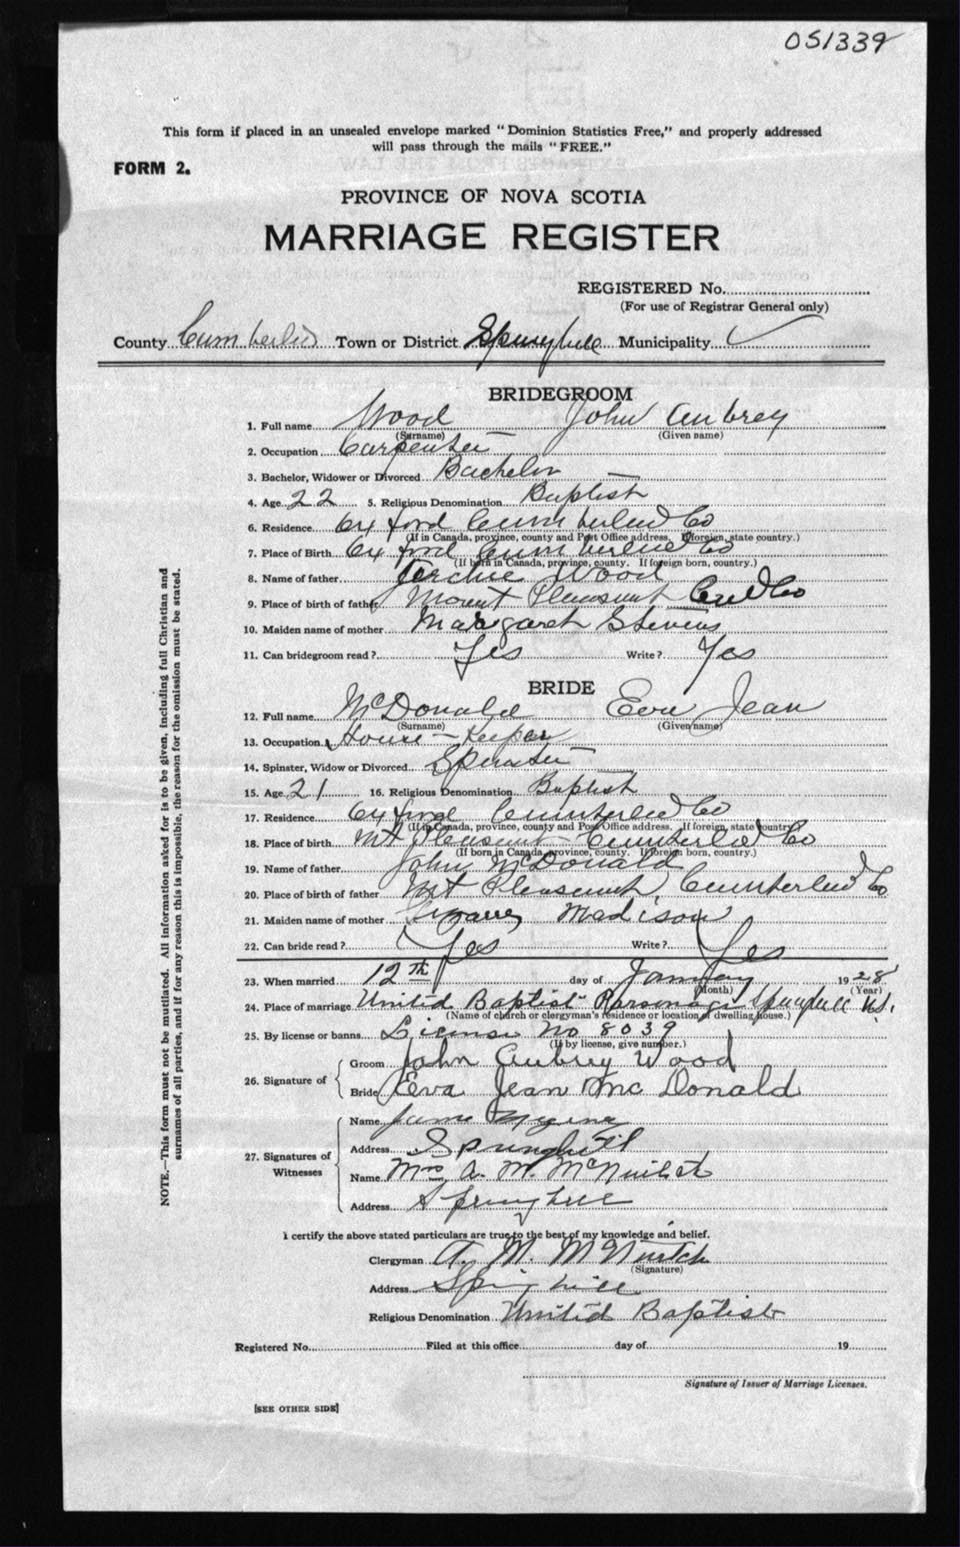 051339
This form if placed in an unsealed envelope marked "Dominion Statistics Free," and properly addressed
will pass through the mails "FREE."
FORM 2.
PROVINCE OF NOVA SCOTIA
MARRIAGE REGISTER
REGISTERED No.
(For use of Registrar General only)
County Cumberland Town or District Springhill Municipality
BRIDEGROOM
1. Full name Wood John Aubrey
(Surname) (Given name)
2. Occupation Carpenter
3. Bachelor, Widower or Divorced Bachelor
4. Age 22 5. Religious Denomination Baptist
6. Residence Oxford Cumberland Co
(If in Canada, province, county and Post Office address. If foreign, state country.)
7. Place of Birth Oxford Cumberland Co
(If born in Canada, province, county. If foreign born, country.)
8. Name of father Archie Wood
9. Place of birth of father Mount Pleasant Cumd Co
10. Maiden name of mother Margaret Stevens
11. Can bridegroom read? Yes Write? Yes
BRIDE
12. Full name McDonald Eva Jean
(Surname) (Given name)
13. Occupation House-Keeper
14. Spinster, Widow or Divorced Spinster
15. Age 21 16. Religious Denomination Baptist
17. Residence Oxford Cumberland Co
(If in Canada, province, county and Post Office address. If foreign, state country)
18. Place of Birth Mt Pleasant Cumberland Co
(If born in Canada, province, county. If foreign born, country.)
19. Name of father John McDonald
20. Place of birth of father Mt Pleasant Cumberland Co
21. Maiden name of mother Madison
22. Can bride read? Yes Write? Yes
23. When married 12th day of January 1928
(Month) (Year)
24. Place of marriage United Baptist Parsonage Springhill N.S.
(Name of church or clergyman's residence or location of dwelling house.)
25. By license or banns License No 8039
(If by license, give number.)
26. Signature of
Groom John Aubrey Wood
Bride Eva Jean McDonald
27. Signatures of Witnesses
Name
Address Springhill
Name Mrs A. M.
Address Springhill
I certify the above stated particulars are true to the best of my knowledge and belief.
Clergyman A. M.
(Signature)
Address Springhill
Religious Denomination United Baptist
Registered No. Filed at this office day of 19
Signature of Issuer of Marriage Licenses.
[SEE OTHER SIDE]
NOTE.—This form must not be mutilated. All information asked for is to be given, including full Christian and
surnames of all parties, and if for any reason this is impossible, the reason for the omission must be stated.